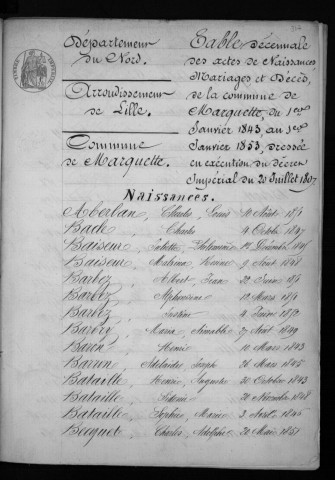 Département
du Nord.
Arrondissement
de Lille.
Commune
de Marquette.
Table décennale
des actes de Naissances,
Mariages et Décès,
de la commune de
Marquette, du 1er
Janvier 1843 au 1er
Janvier 1853, dressée
en exécution du décret
Impérial du 20 Juillet 1807
Naissances.
Aberlan, Charles Louis Août
Bade, Charles 4 Octbre 1847
Baiseur, Juliette Philomène Décembre
Baiseur, 9 Août 1848
Barbez, Albert Jean 22 Juin
Barbez, Alphonsine Mars
Barbez, Justine
Barbry, Maria Aimable 27 Août 1849
Baron, Henri 11 Mars 1843
Barron, Adelaïde Joseph 26 Mars 1845
Bataille, Henri Auguste 20 Octobre 1843
Bataille, 20 Novembre 1848
Bataille, Sophie Marie 3 1845
Becquet, Charles Adolphe 20 Mai 1851